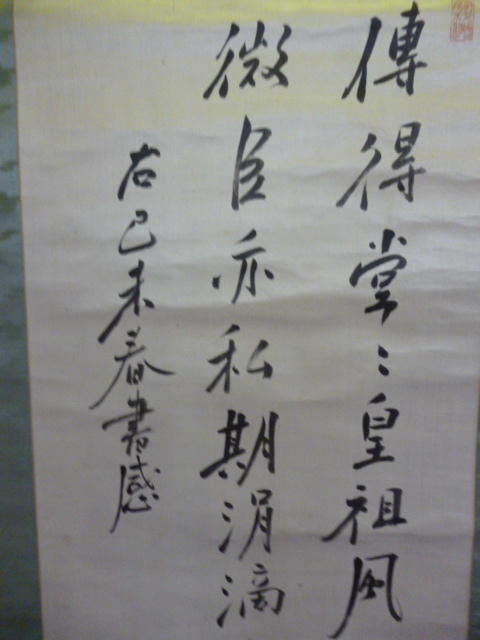 傳得堂〻皇祖風
微臣亦私期涓滴
右己未春書感